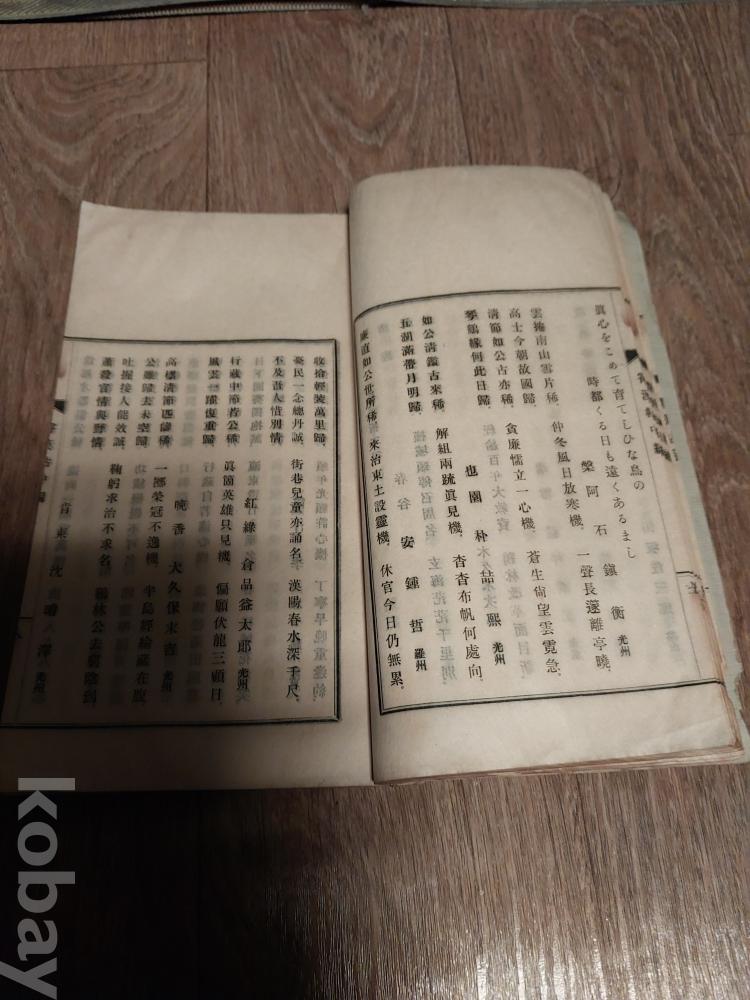 眞心をこめて育てしひな鳥の
時都くる日も遠くあるまし
槃阿 石鎭衡 光州
雲捲南山雲片稀 仲冬風日放寒機 一聲長遂離亭曉
高士今朝故國歸 貪廉懦立一心機 蒼生尙望雲霓急
清節如公古亦稀
琴鶴緣何此日歸
也園 朴喆熙 光州
如公淸鑑古來稀 解組兩疏眞見機 杳杳布帆何處向
五湖滿帶月明歸
春谷 安鍾哲 羅州
廉直如公世所稀 來治東土設靈機 休官今日仍無累
收拾輕裝萬里歸
憂民一念總丹誠 街巷兒童亦誦名 漢陽春水深千尺
不及吾人惜別情
紅綠 倉品益太郎 光州
行藏中節若公稀 眞箇英雄只見機 偏願伏龍三顧日
風雲一躍復重歸
晩香 大久保末吉 光州
高標清節匹儔稀 一擲榮冠不逸機 半島經綸藏在腹
公雖歸去未空歸
吐握接人能效誠 鞠躬求治不求名